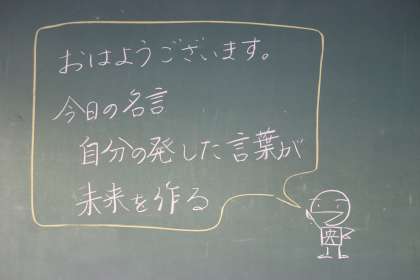 おはようございます。
今日の名言
自分の発した言葉が
未来を作る
央